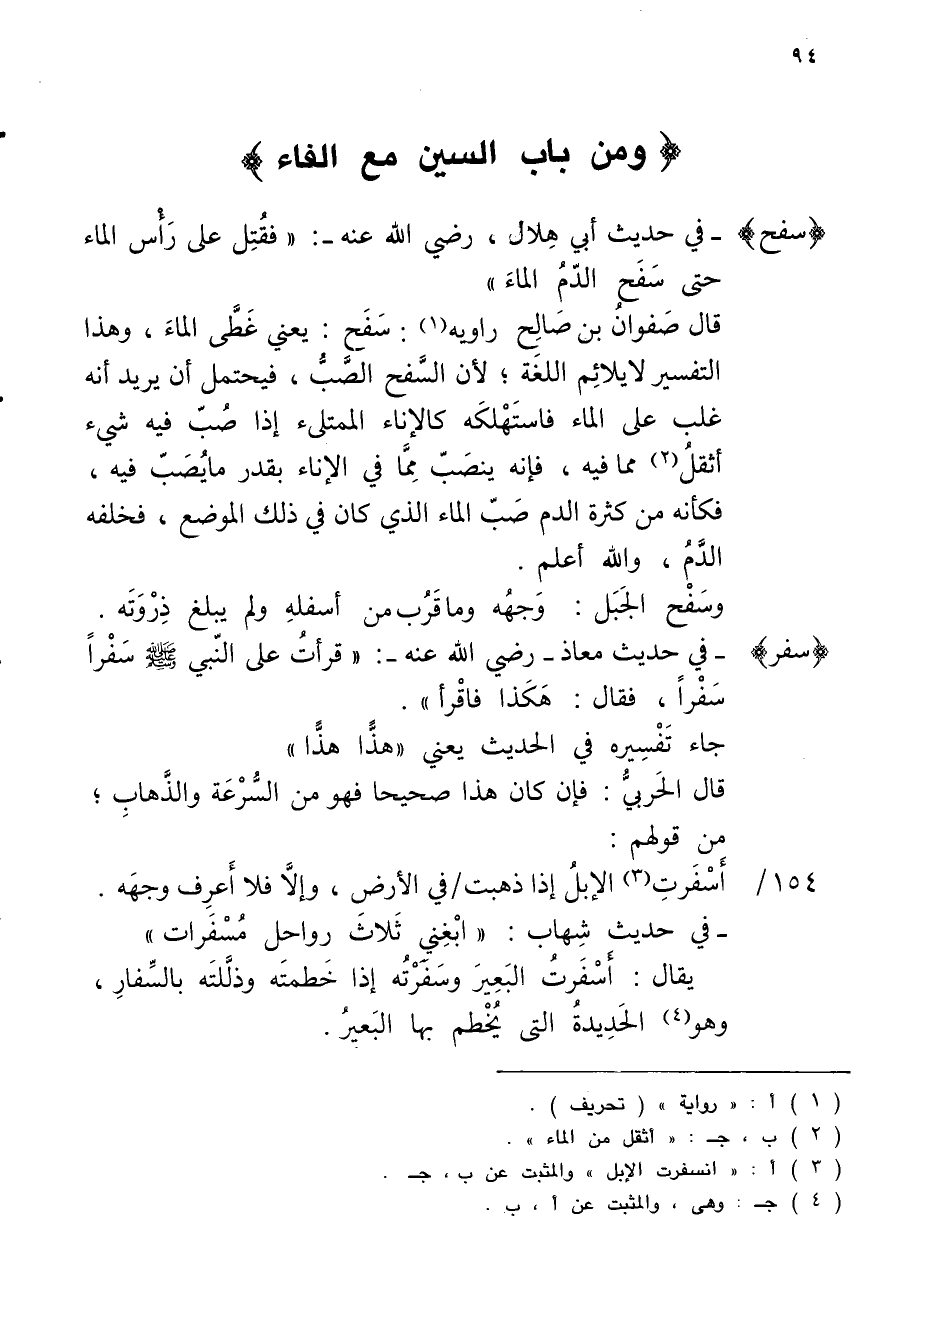 ٩٤
﴿ ومن باب السين مع الفاء ﴾
﴿سفح﴾ ـ في حديث أبي هِلال ، رضي الله عنه ـ: « فقُتِل على رَأْس الماء
حتى سَفَح الدّمُ الماءَ »
قال صَفوانُ بن صَالِح راويه(١) : سَفَح : يعني غَطَّى الماءَ ، وهذا
التفسير لايلائِم اللغَة ؛ لأن السَّفح الصَّبُّ ، فيحتمل أن يريد أنه
غلب على الماء فاستَهْلكَه كالإناء الممتلىء إذا صُبّ فيه شيء
أثقلُ(٢) مما فيه ، فإنه ينصَبّ مِمَّا في الإناء بقدر مايُصَبّ فيه ،
فكأنه من كثرة الدم صَبّ الماء الذي كان في ذلك الموضع ، فخلفه
الدَّمُ ، والله أعلم .
وسَفْح الجَبَل : وَجهُه وماقَرُب من أسفلهِ ولم يبلغ ذِرْوَتَه .
﴿سفر﴾ ـ في حديث معاذ ـ رضي الله عنه ـ: « قرأتُ على النّبي ﷺ سَفْراً
سَفْراً ، فقال : هَكَذا فاقْرأ » .
جاء تَفْسِيره في الحديث يعني «هذًّا هذًّا »
قال الحَربيُّ : فإن كان هذا صحيحا فهو من السُّرْعَة والذَّهابِ ؛
من قولهم :
١٥٤/ أَسْفَرتِ(٣) الإبلُ إذا ذهبت/في الأرض ، وإلَّا فلا أَعرِف وجهَه .
ـ في حديث شِهاب : « ابْغِني ثَلاثَ رواحل مُسْفَرات »
يقال : أَسْفَرتُ البَعِيرَ وسَفَرْتُه إذا خَطمتَه وذلَّلتَه بالسِّفارِ ،
وهو(٤) الحَدِيدةُ التى يُخْطم بها البَعيرُ .
( ١ ) أ : « رواية » ( تحريف ) .
( ٢ ) ب ، جـ : « أثقل من الماء » .
( ٣ ) أ : « انسفرت الإبل » والمثبت عن ب ، جـ .
( ٤ ) جـ : وهى ، والمثبت عن أ ، ب .